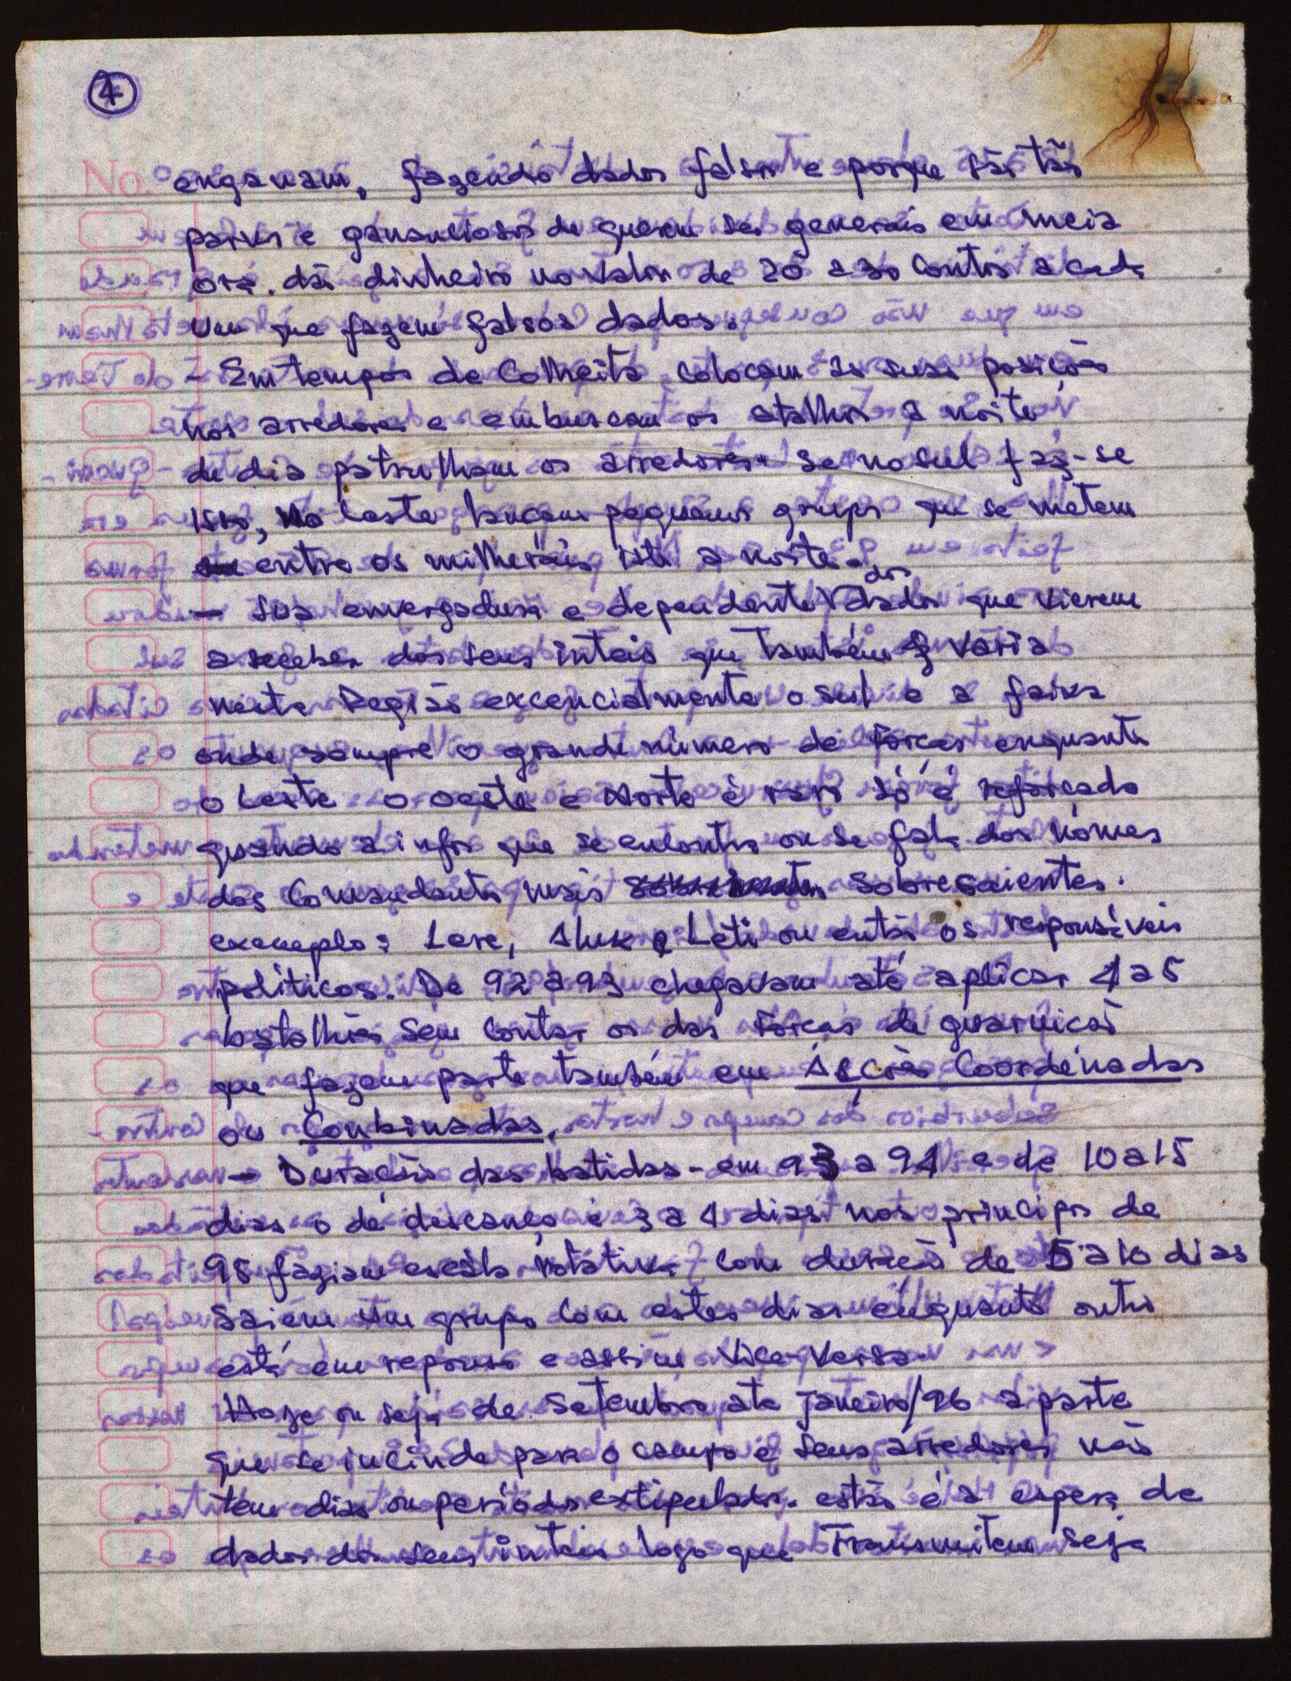 4
No. enganam, fazendo dados falsos e porque são tão
parvos e gananciosos de querem ser generais em meia
ora. dão dinheiro no valor de 20 a 30 contos a cada
um que fazem falsos dados.
- Em tempos de Colheita colocam as suas posições
nos arredores e emburcam os atalhos a noite
de dia patrulham os arredores. se no sul faz-se
isto, no Leste lançam pequenos grupos que se metem
entre os milherais isto a noite.
- sua envergadura e dependente dos dados que vierem
a receber dos seus inteis que também varia
nesta Região excencialmente o sul e a faixa
onde sempre o grande número de Forças enquanto
o Leste o oeste e Norte é raro só é reforçado
quando a infor que se encontra ou se fala dos nómes
dos Comandantes mais sobresaientes.
exemplo: Lere, Aluk e Leti ou então os responsáveis
políticos. De 92 a 93 chegavam até aplicar 4 a 5
batalhões sem contar os das Forças de guarnicão
que fazem parte também em Accões Coordenadas
ou Conbinadas.
- Duracão das batidas - em 93 a 94 e de 10 a 15
dias o de descanço é 3 a 4 dias nos principos de
95 faziam escala rotativa com duracão de 5 a 10 dias
saiem um grupo com estes dias enquanto outro
está em repouso e assim vice-versa.
Hoge ou seja de Setembro até janeiro/96 a parte
que se incinde para o campo e seus arredores não
tem dias ou período extipulado. estão é a espera de
dados dos seus inteis logo que Transmitem seja